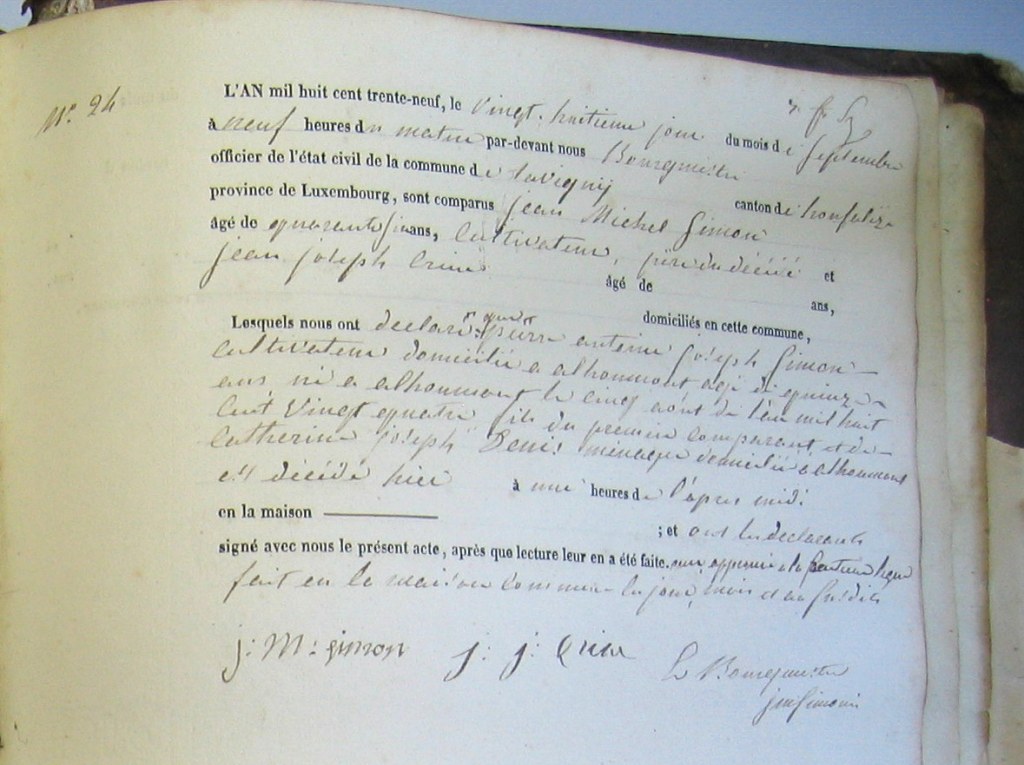 N° 24
L'AN mil huit cent trente-neuf, le vingt-huitieme jour du mois de septembre
à neuf heures du matin par-devant nous Bourgmestre
officier de l'état civil de la commune de tavigny canton de houfalize
province de Luxembourg, sont comparus jean Michel Simon
âgé de quarante ans, Cultivateur, père du décédé et
jean joseph âgé de ans,
domiciliés en cette commune,
Lesquels nous ont declaré que pierre antoine joseph Simon
Cultivateur domicilié a alhoumont agé de quinze
ans né a alhoumont le cinq août de l'an mil huit
Cent Vingt quatre fils du premier Comparant et de
Catherine joseph Denis ménagere domicilié a alhoumont
est décédé hier à une heures de l'apres midi
en la maison ; et ont les declarants
signé avec nous le présent acte, après que lecture leur en a été faite.
fait en la maison Commune les jour, mois et an susdits
j: M: simon j: j:
Le Bourgmestre